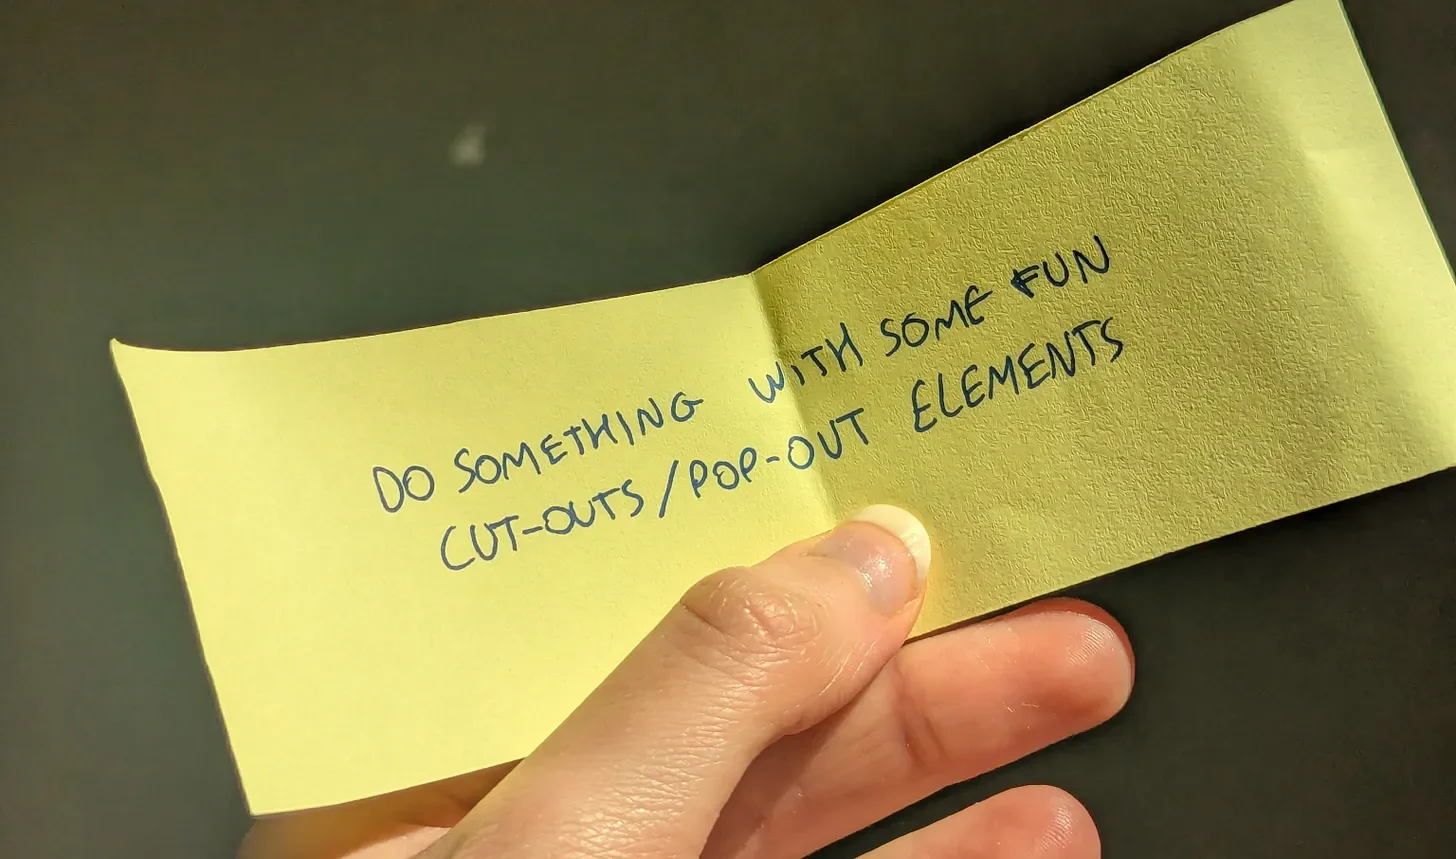 DO SOMETHING WITH SOME FUN
CUT-OUTS/POP-OUT ELEMENTS